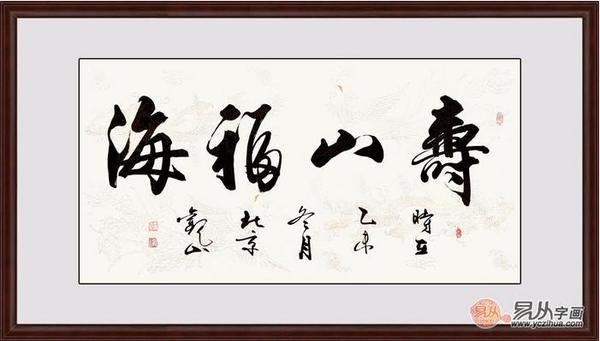 壽山福海
時在
乙未
冬月
北京
觀山
易从
易从字画
www.yczihua.com